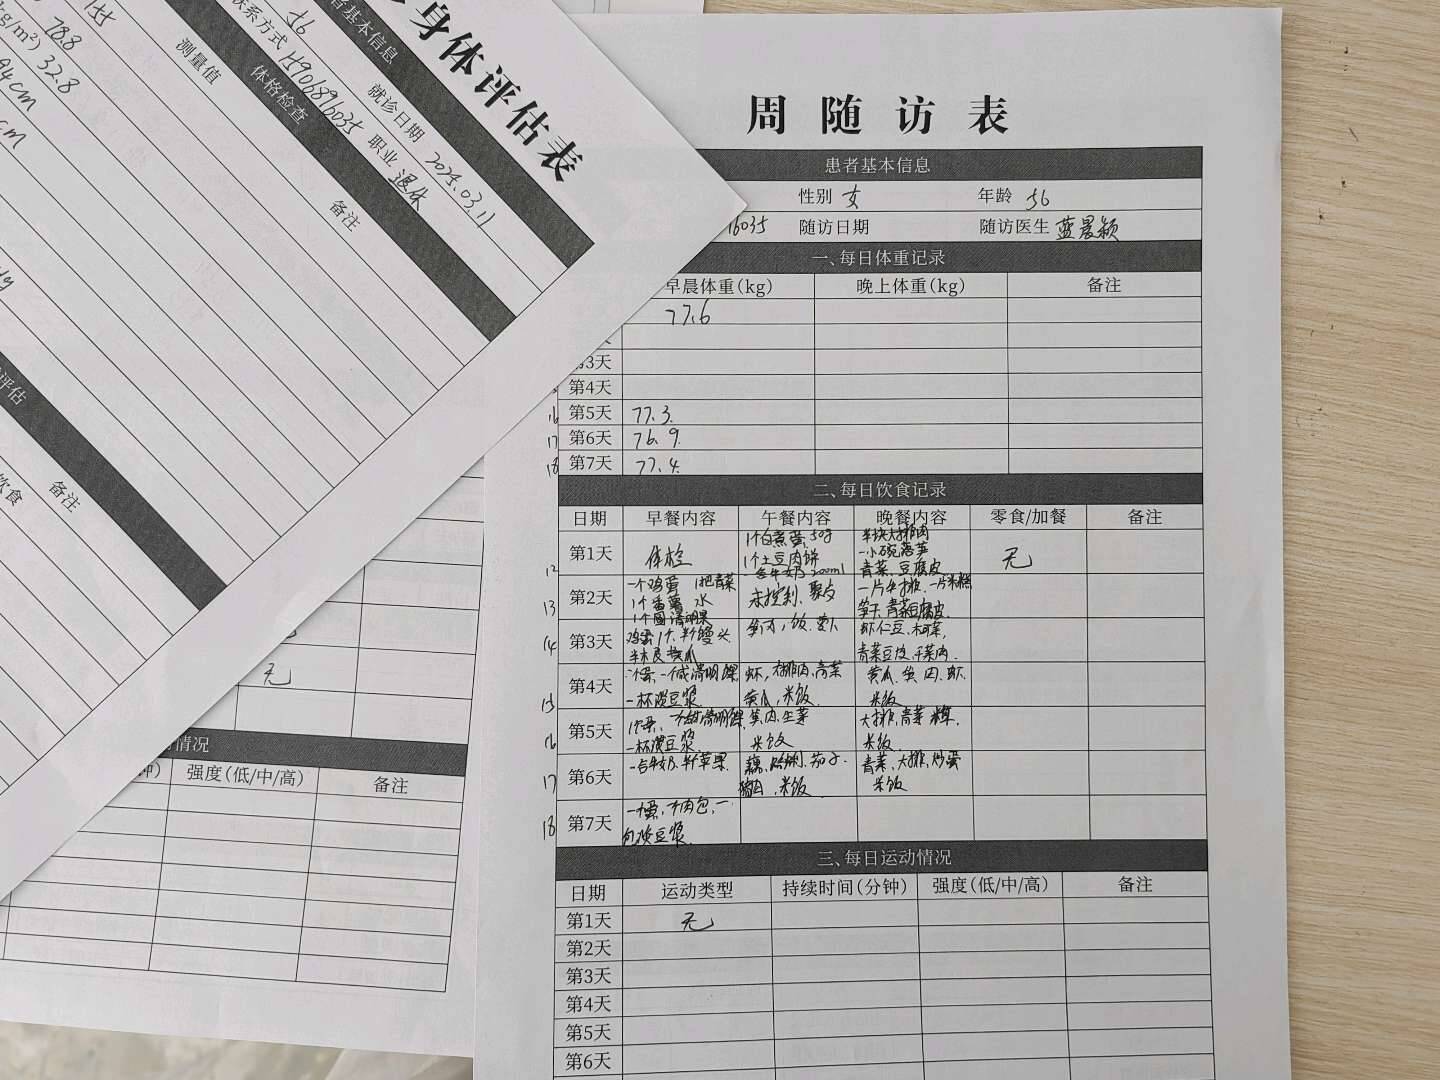 身体评估表
者基本信息
56
就诊日期 2025.03.11
联系方式 15900896035 职业 退休
体格检查
测量值
备注
78.8
(kg/m²) 32.8
94cm
cm
评估
饮食
备注
无
情况
强度(低/中/高)
备注
周随访表
患者基本信息
性别 女 年龄 56
6035 随访日期 随访医生 蓝晨颖
一、每日体重记录
早晨体重(kg) 晚上体重(kg) 备注
77.6
第3天
第4天
16 第5天 77.3.
17 第6天 76.9.
18 第7天 77.4.
二、每日饮食记录
日期 早餐内容 午餐内容 晚餐内容 零食/加餐 备注
12 第1天 体检 1个白煮蛋 50g 1个土豆肉饼 一盒牛奶 200ml 半块大排肉 一小碗 青菜、豆腐皮 无
13 第2天 一个鸡蛋 1把青菜 1个番薯 水 1个圆清明果 未控制、聚占 一片牛排、一片 笋干、青菜豆腐皮
14 第3天 鸡蛋1个、半个馒头 半根黄瓜 笋、肉、饭 虾仁豆、 青菜豆皮、干菜肉
15 第4天 一个蛋、一个咸清明粿 一杯淡豆浆 虾、大排肉、青菜 黄瓜、米饭 黄瓜、笋、肉、虾、 米饭
16 第5天 1个蛋、 清明粿 一杯淡豆浆 笋、肉、生菜 米饭 大排、青菜 米饭
17 第6天 一盒牛奶、半个苹果 藕、 茄子、 米饭 青菜、大排、炒蛋 米饭
18 第7天 一个蛋、个肉包、一 包淡豆浆
三、每日运动情况
日期 运动类型 持续时间(分钟) 强度(低/中/高) 备注
第1天 无
第2天
第3天
第4天
第5天
第6天